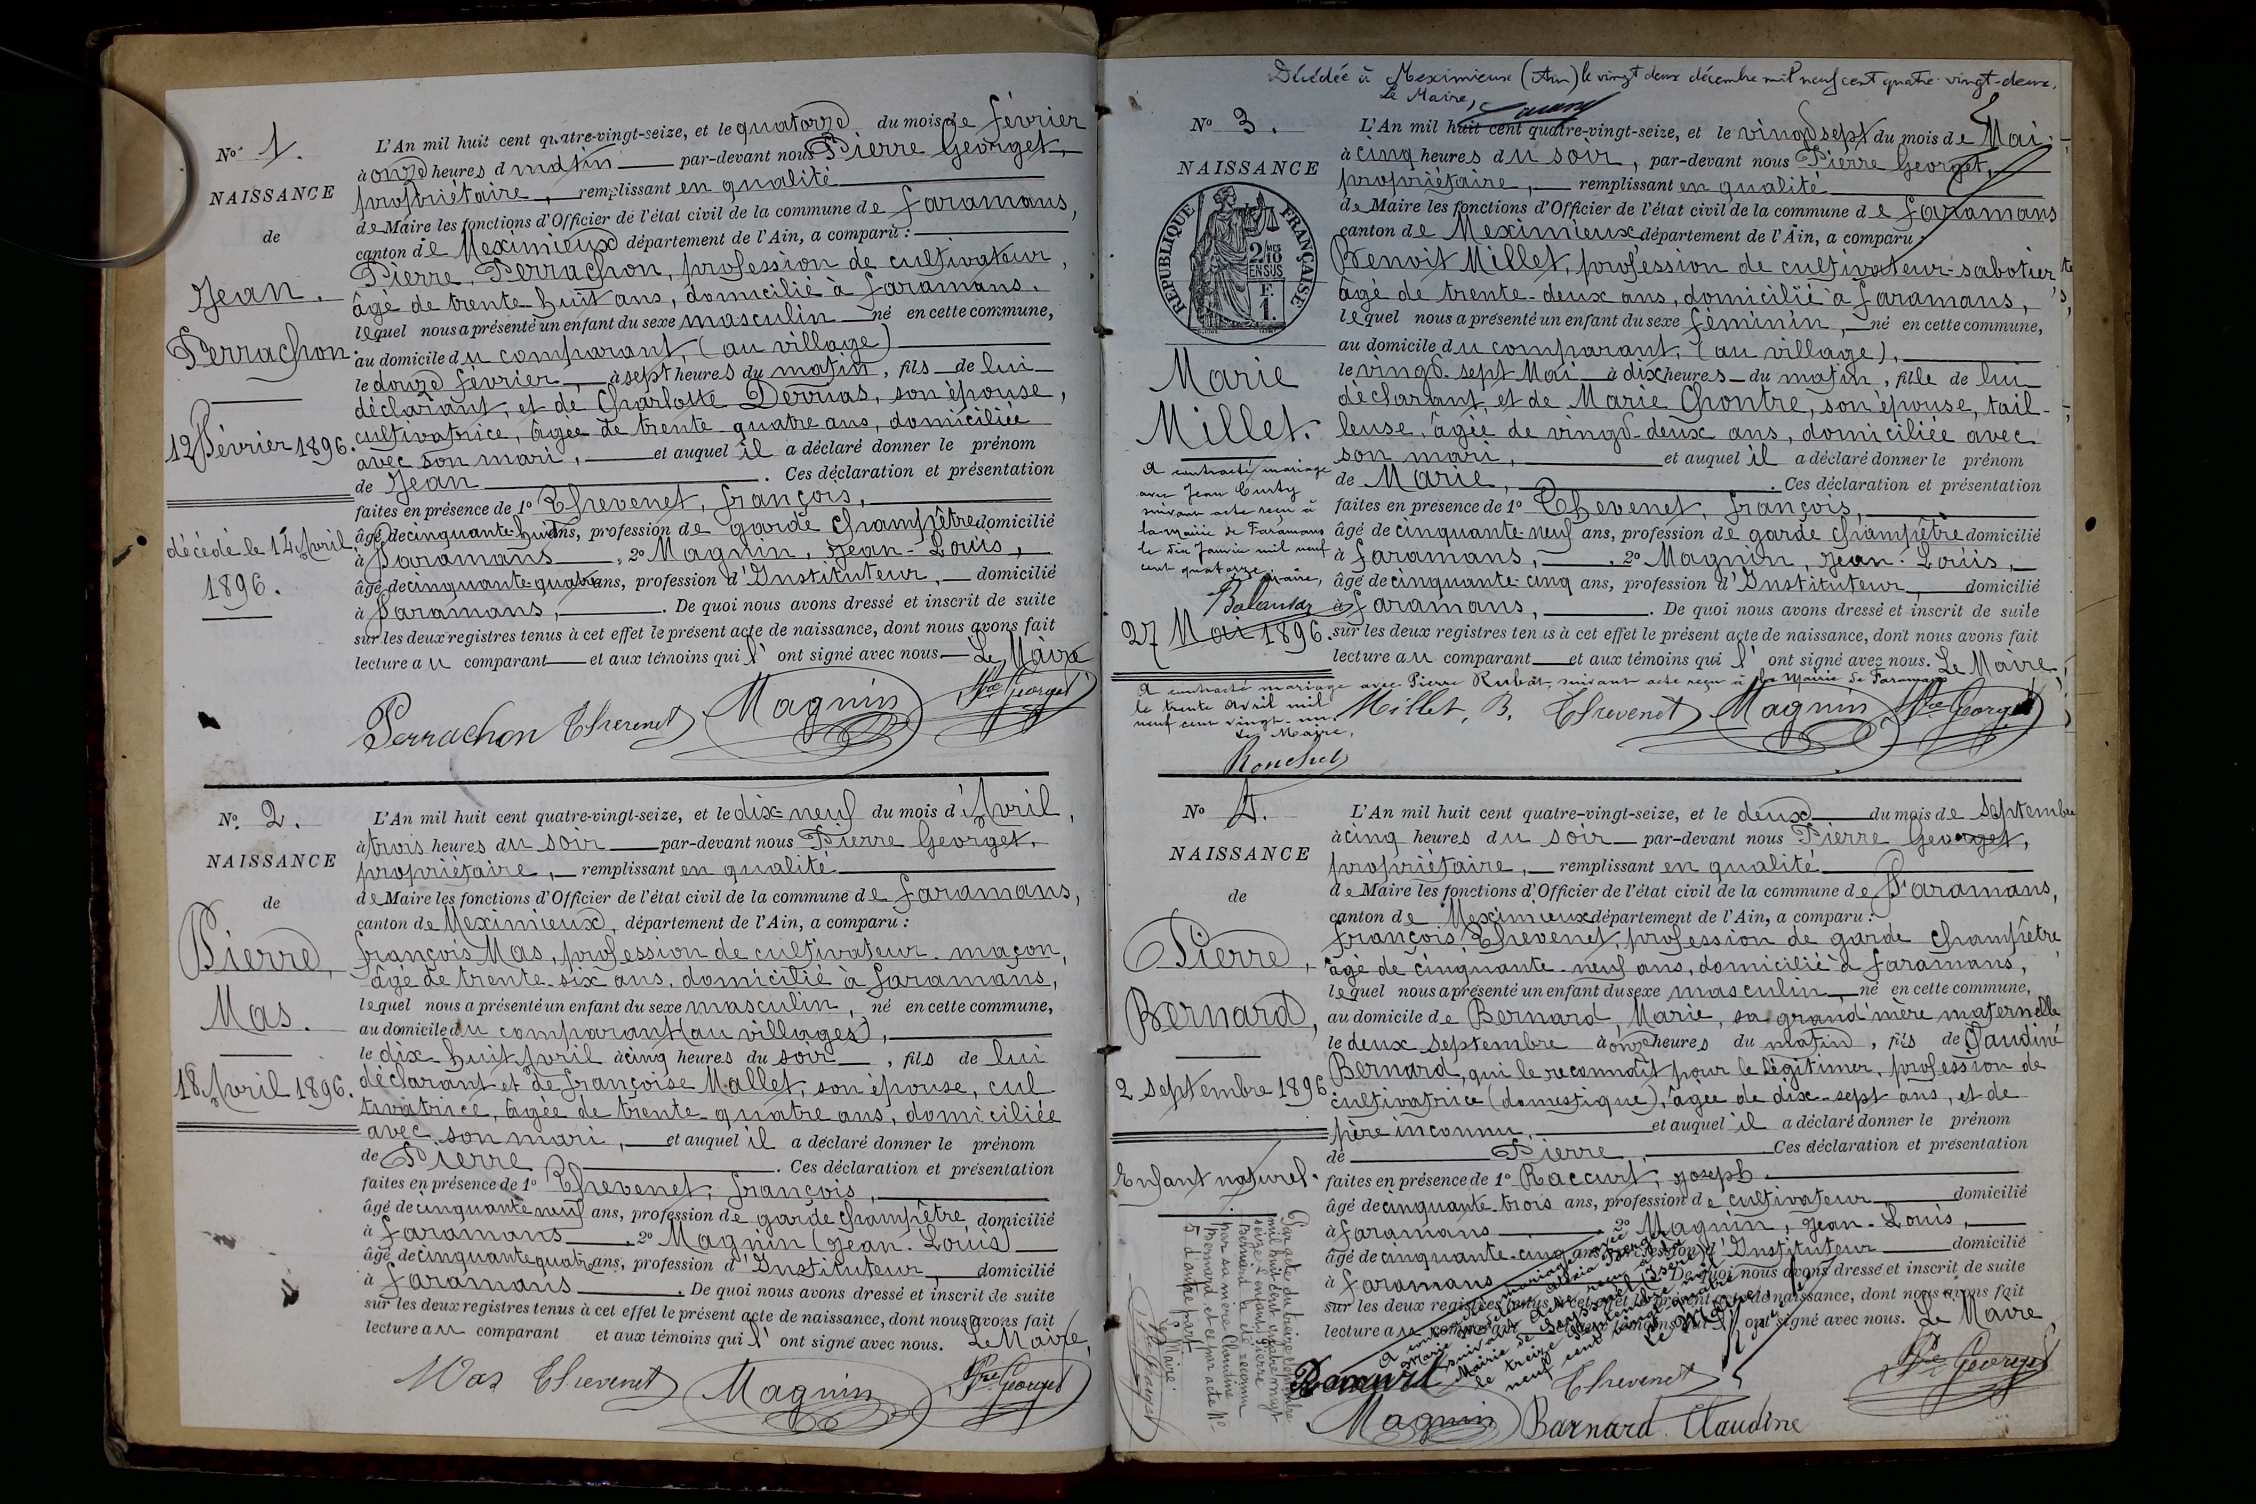 Nº 1.
NAISSANCE
de
Jean
Perrachon.
12 Février 1896.
décédé le 14 Avril
1896.
L'An mil huit cent quatre-vingt-seize, et le quatorze du mois de février
à onze heures du matin par-devant nous Pierre Georget,
propriétaire, remplissant en qualité
de Maire les fonctions d'Officier de l'état civil de la commune de faramans,
canton de Meximieux département de l'Ain, a comparu :
Pierre Perrachon, profession de cultivateur,
âgé de trente-huit ans, domicilié à faramans.
lequel nous a présenté un enfant du sexe masculin né en cette commune,
au domicile du comparant, (au village)
le douze février, à sept heures du matin, fils de lui
déclarant, et de Charlotte Dervias, son épouse,
cultivatrice, âgée de trente-quatre ans, domiciliée
avec son mari, et auquel il a déclaré donner le prénom
de Jean. Ces déclaration et présentation
faites en présence de 1º Thevenet, françois,
âgé de cinquante-huit ans, profession de garde champêtre domicilié
à Faramans, 2º Magnin, Jean-Louis,
âgé de cinquante-quatre ans, profession d'Instituteur, domicilié
à Faramans, . De quoi nous avons dressé et inscrit de suite
sur les deux registres tenus à cet effet le présent acte de naissance, dont nous avons fait
lecture au comparant et aux témoins qui l'ont signé avec nous. Le Maire
Perrachon Thevenet Magnin Pre Georget
Nº 2.
NAISSANCE
de
Pierre,
Mas.
18 Avril 1896.
L'An mil huit cent quatre-vingt-seize, et le dix-neuf du mois d'Avril,
à trois heures du soir par-devant nous Pierre Georget.
propriétaire, remplissant en qualité
de Maire les fonctions d'Officier de l'état civil de la commune de faramans,
canton de Meximieux, département de l'Ain, a comparu :
françois Mas, profession de cultivateur-maçon,
âgé de trente-six ans, domicilié à faramans,
lequel nous a présenté un enfant du sexe masculin, né en cette commune,
au domicile du comparant (au villages),
le dix-huit Avril à cinq heures du soir, fils de lui
déclarant et de françoise Mallet, son épouse, cul
tivatrice, âgée de trente-quatre ans, domiciliée
avec son mari, et auquel il a déclaré donner le prénom
de Pierre. Ces déclaration et présentation
faites en présence de 1º Thevenet, françois,
âgé de cinquante neuf ans, profession de garde champêtre domicilié
à faramans, 2º Magnin (Jean-Louis)
âgé de cinquante quatre ans, profession d'Instituteur, domicilié
à faramans. De quoi nous avons dressé et inscrit de suite
sur les deux registres tenus à cet effet le présent acte de naissance, dont nous avons fait
lecture au comparant et aux témoins qui l'ont signé avec nous. Le Maire,
Mas Thevenet Magnin Pre Georget
Décédée à Meximieux (Ain) le vingt deux décembre mil neuf cent quatre-vingt-deux.
Le Maire,
Nº 3.
NAISSANCE
RÉPUBLIQUE FRANÇAISE
2/10 MES
EN SUS
F.
1.
Marie
Millet.
A contracté mariage
avec Jean Curty
suivant acte reçu à
la mairie de Faramans
le dix Janvier mil neuf
cent quatorze.
maire,
27 Mai 1896.
A contracté mariage avec Pierre Rubat, suivant acte reçu à la Mairie de Faramans
le trente avril mil
neuf cent vingt-un.
Le Maire,
L'An mil huit cent quatre-vingt-seize, et le vingt sept du mois de Mai
à cinq heures du soir, par-devant nous Pierre Georget,
propriétaire, remplissant en qualité
de Maire les fonctions d'Officier de l'état civil de la commune de faramans
canton de Meximieux département de l'Ain, a comparu :
Benoit Millet, profession de cultivateur-sabotier,
âgé de trente-deux ans, domicilié à faramans,
lequel nous a présenté un enfant du sexe féminin, né en cette commune,
au domicile du comparant, (au village),
le vingt-sept Mai à dix heures du matin, fille de lui
déclarant, et de Marie Chontre, son épouse, tail-
leuse, âgée de vingt-deux ans, domiciliée avec
son mari, et auquel il a déclaré donner le prénom
de Marie, . Ces déclaration et présentation
faites en présence de 1º Thevenet, françois,
âgé de cinquante-neuf ans, profession de garde champêtre domicilié
à faramans, 2º Magnin, Jean-Louis,
âgé de cinquante-cinq ans, profession d'Instituteur, domicilié
à faramans, . De quoi nous avons dressé et inscrit de suite
sur les deux registres tenus à cet effet le présent acte de naissance, dont nous avons fait
lecture au comparant et aux témoins qui l'ont signé avec nous. Le Maire,
Millet, B. Thevenet Magnin Pre Georget
Nº 4.
NAISSANCE
de
Pierre,
Bernard,
2 septembre 1896
Enfant naturel.
L'An mil huit cent quatre-vingt-seize, et le deux du mois de septembre
à cinq heures du soir par-devant nous Pierre Georget,
propriétaire, remplissant en qualité
de Maire les fonctions d'Officier de l'état civil de la commune de Faramans,
canton de Meximieux département de l'Ain, a comparu :
françois Thevenet, profession de garde champêtre
âgé de cinquante-neuf ans, domicilié à faramans,
lequel nous a présenté un enfant du sexe masculin, né en cette commune,
au domicile de Bernard, Marie, sa grand'mère maternelle
le deux septembre à onze heures du matin, fils de Claudine
Bernard, qui le reconnaît pour le légitimer, profession de
cultivatrice (domestique), âgée de dix-sept ans, et de
père inconnu, et auquel il a déclaré donner le prénom
de Pierre, . Ces déclaration et présentation
faites en présence de 1º Raccurt, Joseph
âgé de cinquante-trois ans, profession de cultivateur domicilié
à faramans, 2º Magnin, Jean-Louis,
âgé de cinquante-cinq ans, profession d'Instituteur domicilié
à faramans. De quoi nous avons dressé et inscrit de suite
sur les deux registres tenus à cet effet le présent acte de naissance, dont nous avons fait
lecture au comparant et aux témoins qui l'ont signé avec nous. Le Maire
Par acte du treize septembre
mil huit cent quatre-vingt
seize l'enfant Pierre
Bernard a été reconnu
par sa mère Claudine
Bernard, et ce par acte Nº
5 d'autre part.
Le Maire.
Pre Georget
A contracté mariage avec
Marie
suivant acte reçu à la
Mairie de
le treize septembre mil
neuf cent vingt quatre
Le Maire
Raccurt Thevenet Pre Georget
Magnin Barnard Claudine